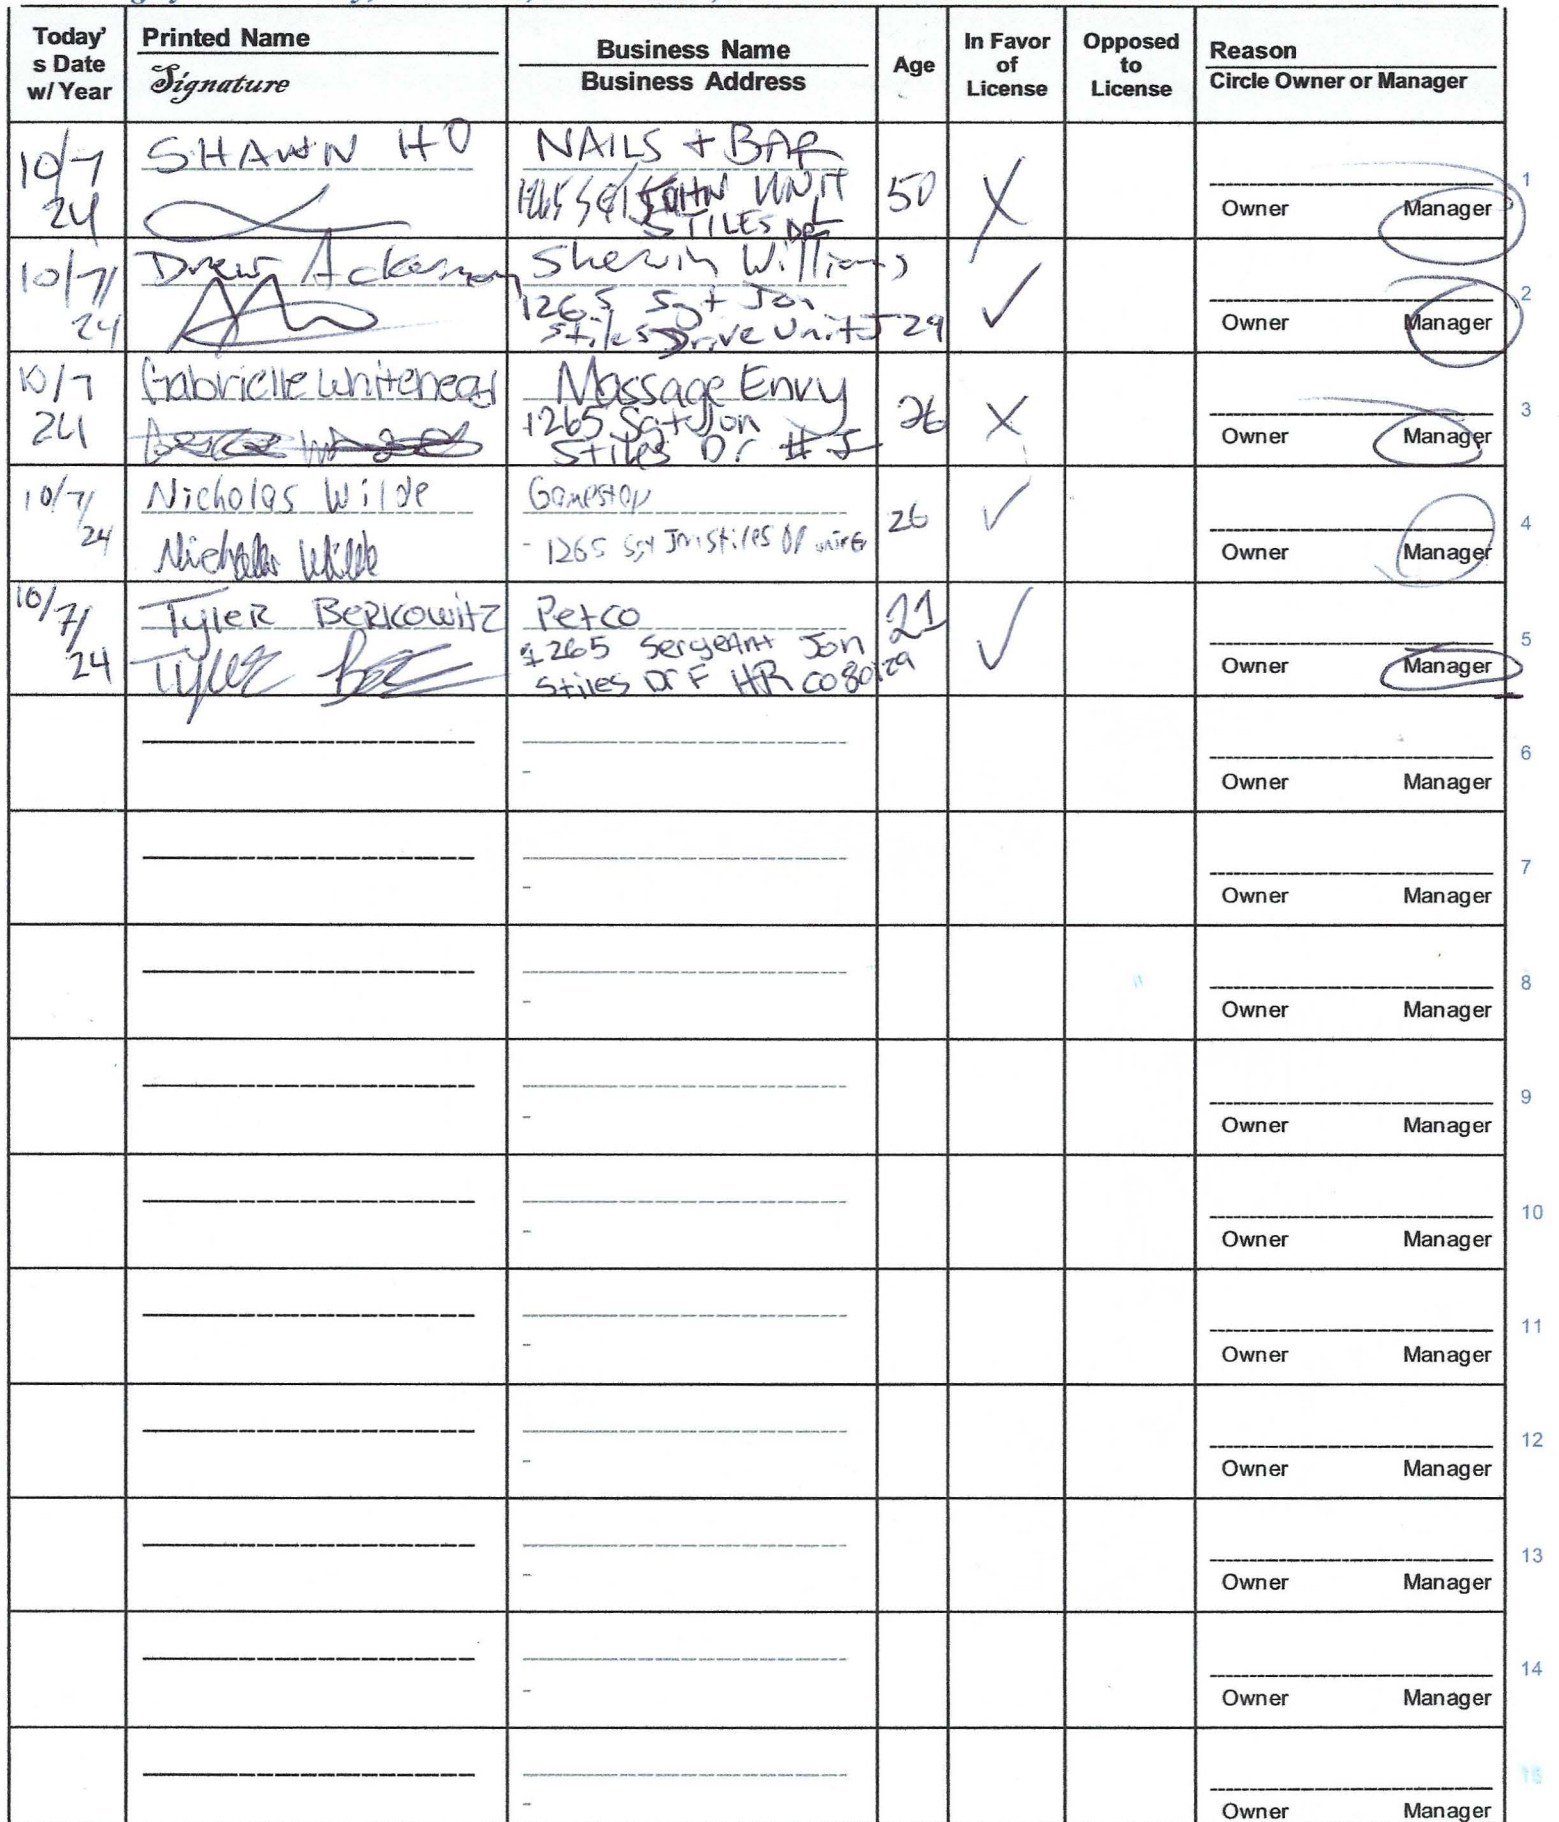 Today'
s Date
w/ Year
Printed Name
Signature
Business Name
Business Address
Age
In Favor
of
License
Opposed
to
License
Reason
Circle Owner or Manager
10/7
24
SHAWN HO
NAILS + BAR
1265 SGT JOHN UNIT
STILES DR L
50
X
Owner Manager
1
10/7/
24
Drew Ackerman
Sherwin Williams
1265 Sgt Jon
Stiles Drive Unit J
29
✓
Owner Manager
2
10/7
24
Gabrielle
Massage Envy
1265 Sgt Jon
Stiles Dr #J
26
X
Owner Manager
3
10/7/
24
Nicholas Wilde
Nicholas Wilde
Gamestop
- 1265 Sgt Jon Stiles Dr
26
✓
Owner Manager
4
10/7/
24
Tyler Berkowitz
Tyler
Petco
1265 Sergeant Jon
Stiles Dr F HR CO 80129
21
✓
Owner Manager
5
-
Owner Manager
6
-
Owner Manager
7
-
Owner Manager
8
-
Owner Manager
9
-
Owner Manager
10
-
Owner Manager
11
-
Owner Manager
12
-
Owner Manager
13
-
Owner Manager
14
-
Owner Manager